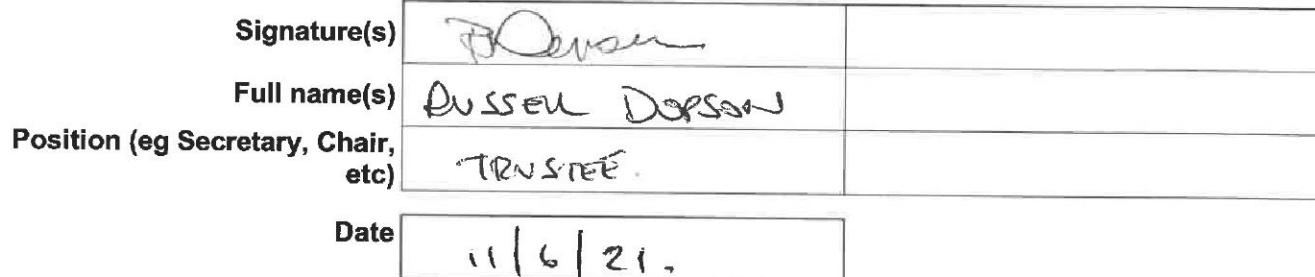 Signature(s)
Full name(s) RUSSELL DOPSON
Position (eg Secretary, Chair, etc) TRUSTEE.
Date 11/6/21.